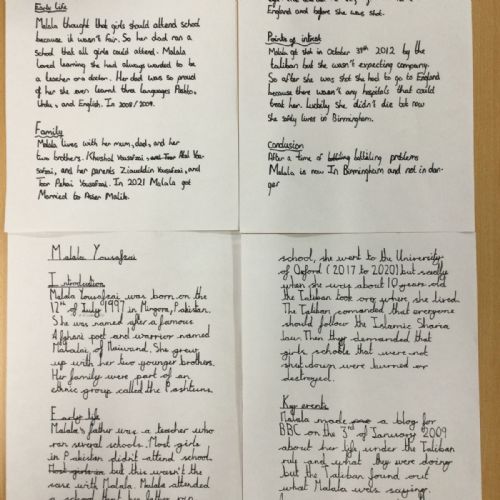 Early life
Malala thought that girls should attend school
because it wasn't fair. So her dad ran a
school that all girls could attend. Malala
loved learning she had always wanted to be
a teacher or a doctor. Her dad was so proud
of her she even learnt three languages Pashto,
Urdu, and English. In 2008/2009.
Family
Malala lives with her mum, dad, and her
two brothers. Khushal Yousafzai, Atal You-
safzai, and her parents Ziauddin Yousafzai, and
Toor Pekai Yousafzai. In 2021 Malala got
Married to Asser Malik.
England and before she was shot.
Points of intrest
Malala got shot in October 2012 by the
taliban but she wasn't expecting company.
So after she was shot she had to go to England
because there wasn't any hospitals that could
treat her. Luckily she didn't die but now
she safely lives in Birmingham.
Conclusion
After a time of battling problems
Malala is now In Birmingham and not in dan-
ger
Malala Yousafzai
Introduction
Malala Yousafzai was born on the
12th of July 1997 in Mingora, Pakistan.
She was named after a famous
Afghani poet and warrior named
Malalai of Maiwand. She grew
up with her two younger brothers.
Her family were part of an
ethnic group called the Pashtuns.
Early life
Malala's father was a teacher who
ran several schools. Most girls
in Pakistan didn't attend school.
Most girls in but this wasn't the
case with Malala. Malala attended
a school that her father ran
school, she went to the University
of Oxford (2017 to 2020) but sadly
when she was about 10 years old
the Taliban took over where she lived.
The Taliban comanded that everyone
should follow the Islamic Sharia
law. Then they demanded that
girls schools that were not
shut down were burned or
destroyed.
Key events
Malala made a blog for
BBC on the 3rd of January 2009
about her life under the Taliban
rule and what they were doing
but the Taliban found out
what Malala was saying.